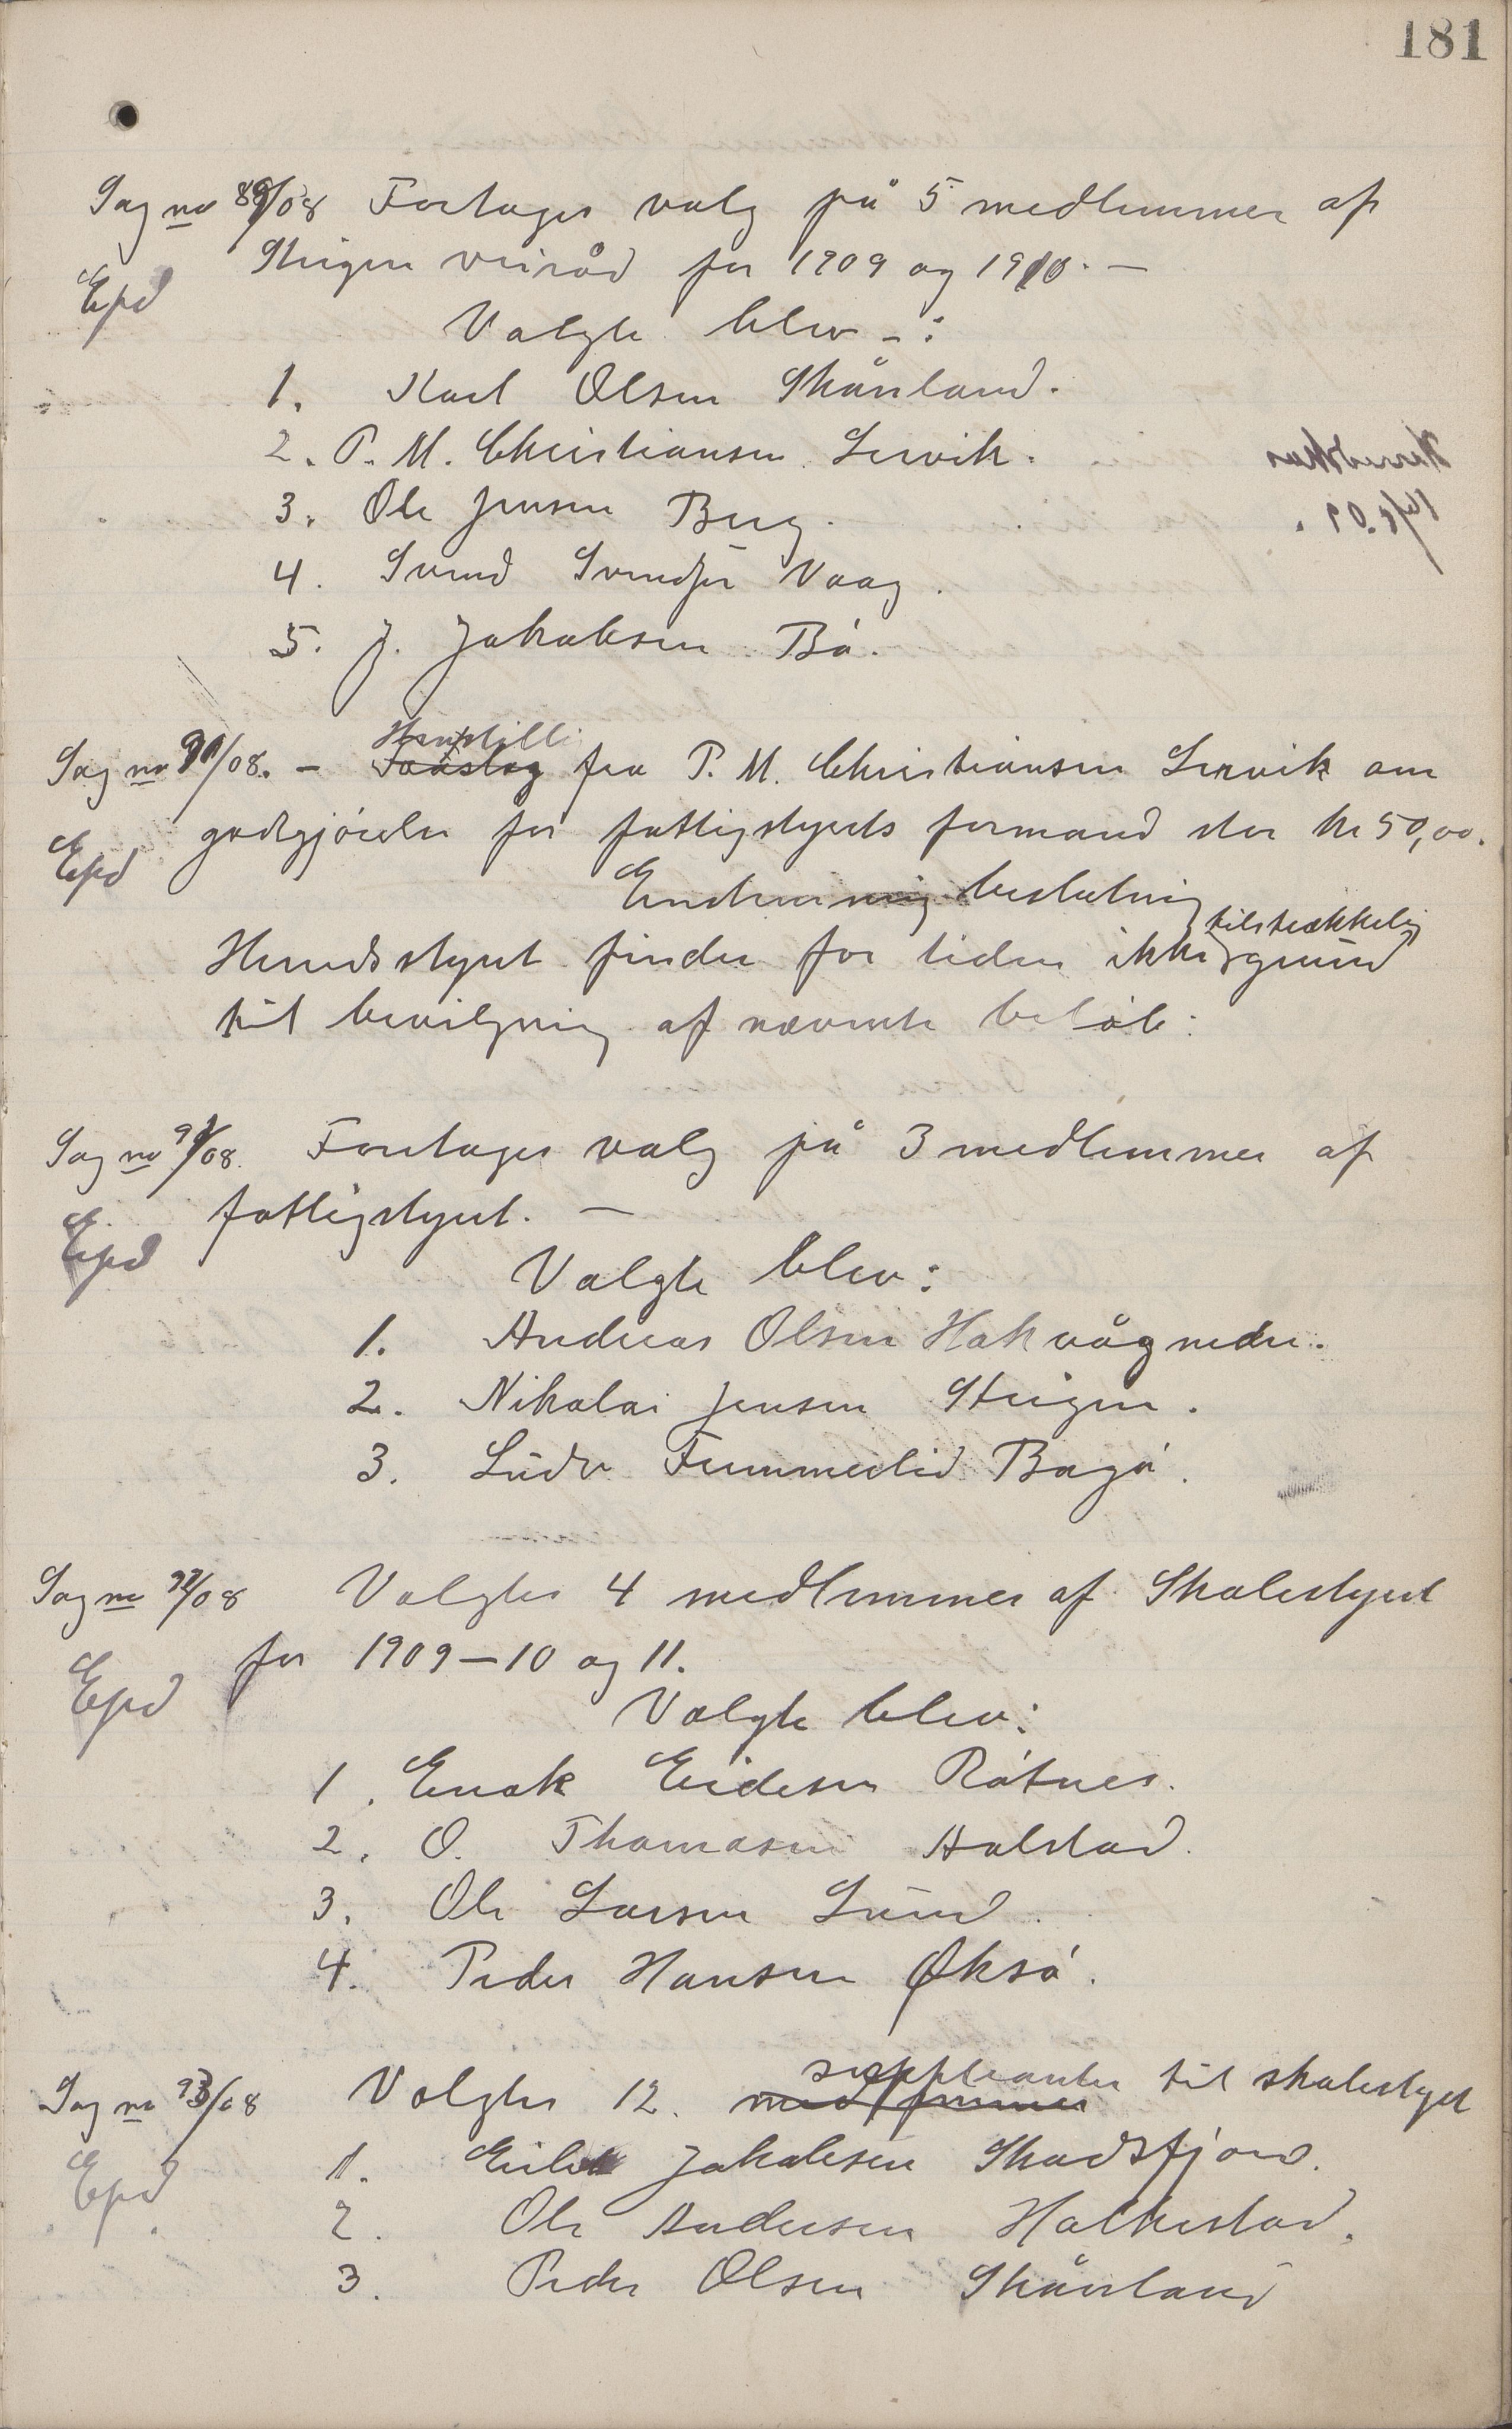 181
Sag no 89/08 Foretages valg på 5 medlemmer af
Steigen veiråd for 1909 og 1910. —
Epd
Valgte blev -:
1. Karl Olsen Skånland.
2. P. M. Christiansen Lervik.
3. Ole Jensen Berg.
4. Svend Svendsen Vaag.
5. J. Jakobsen Bö.
Henstilli
Sag no 90/08. — Forslag fra P. M. Christiansen Lervik om
godtgjörelse for fattigstyrets formand stor kr 50,00.
Epd
Enstemmig beslutning
tilstrækkelig
Herredsstyret finder for tiden ikke grund
til bevilgning af nævnte belöb.
Sag no 91/08. Foretages valg på 3 medlemmer af
fattigstyret. —
Epd
Valgte blev:
1. Andreas Olsen Hakvåg nedre.
2. Nikolai Jensen Steigen.
3. Ludv Tummeslid Bagö.
Sag no 92/08 Valgtes 4 medlemmer af Skolestyret
for 1909—10 og 11.
Epd
Valgte blev:
1. Enok Eidesen Rötnes.
2. O. Thomasen Holstad.
3. Ole Larsen Lund.
4. Peder Hansen Øksö.
suppleanter
Sag no 93/08 Valgtes 12. medlemmer til skolestyret
Epd
1. Eilert Jakobsen Skadsfjord.
2. Ole Andersen Holkestad.
3. Peder Olsen Skånland